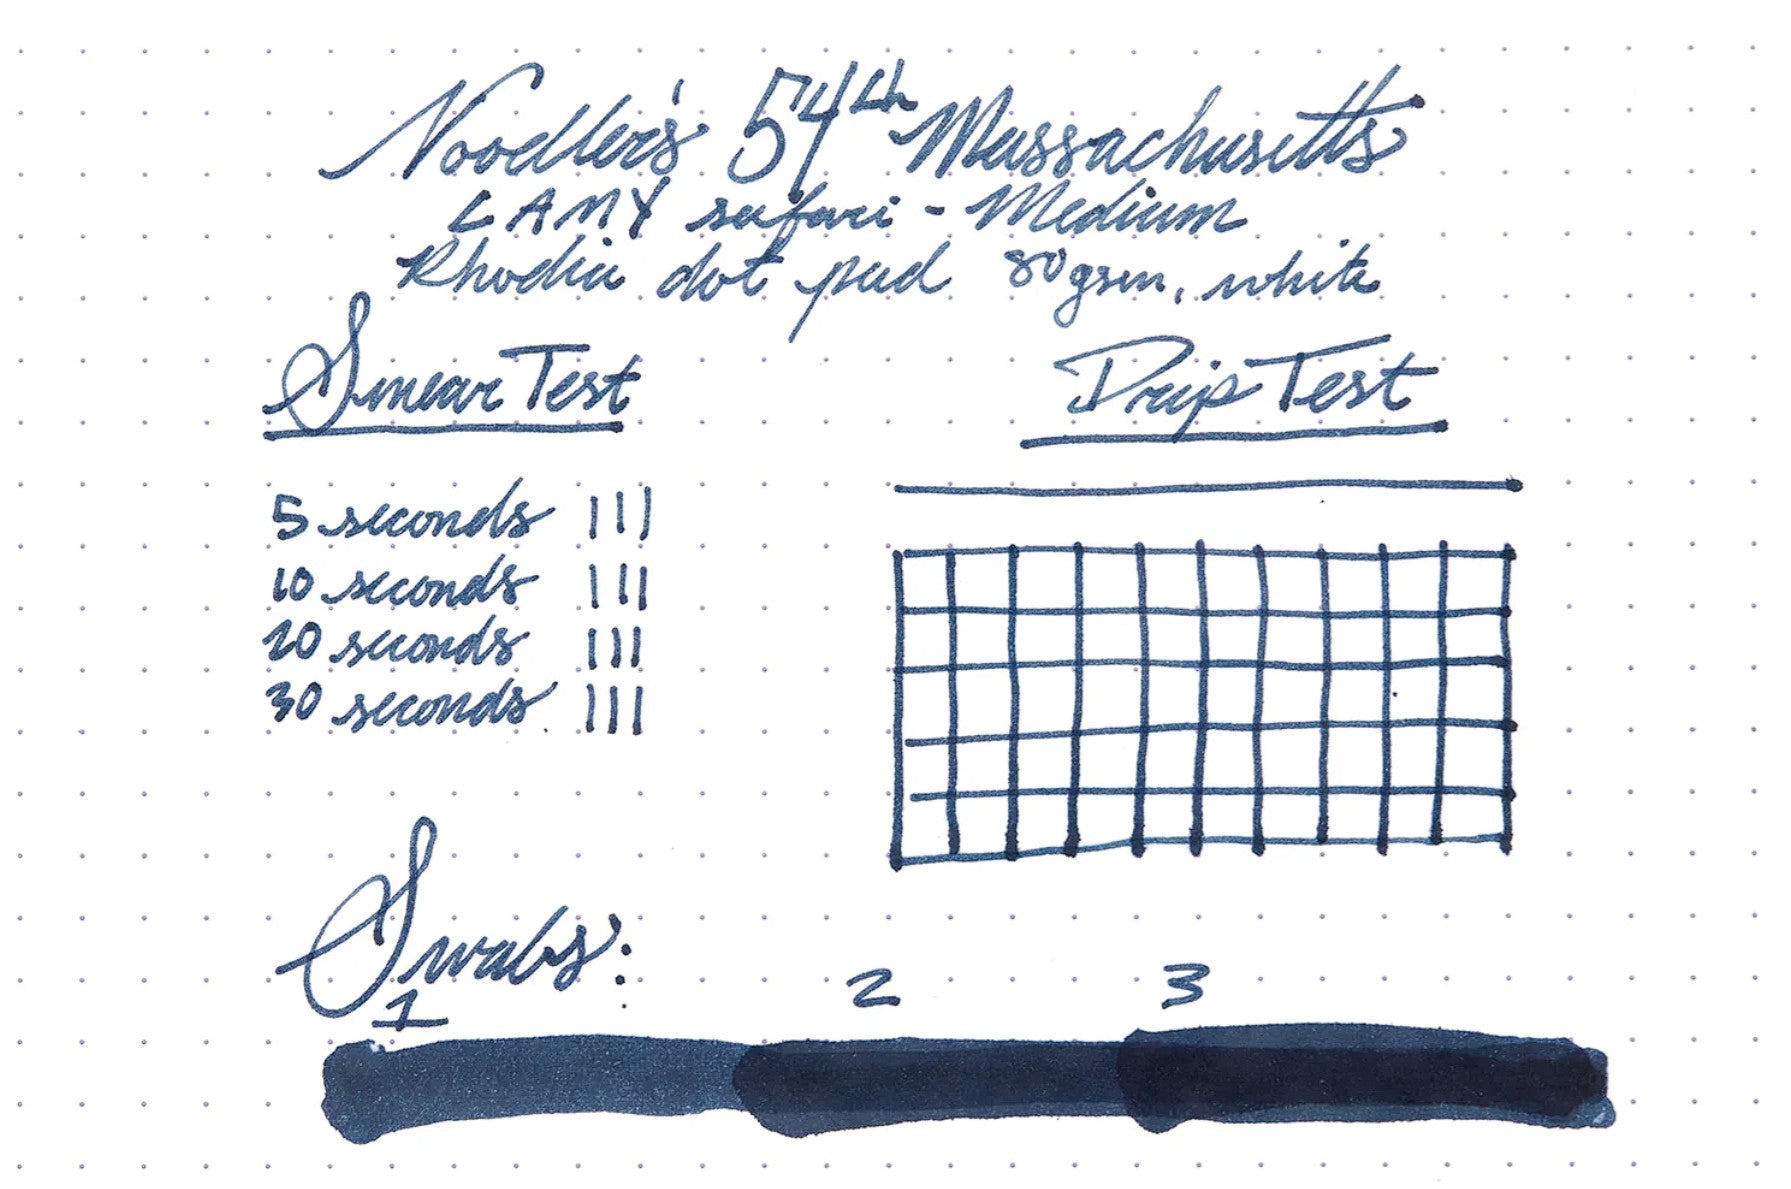 Noodler's 54th Massachusetts
LAMY safari - Medium
Rhodia dot pad 80gsm, white
Smear Test
5 seconds
10 seconds
20 seconds
30 seconds
Drip Test
Swabs:
1 2 3